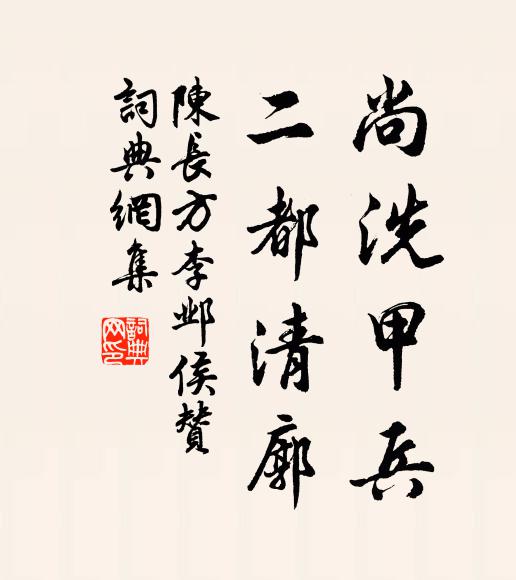 尚洗甲兵
二都清廓
陳長方李鄴侯贊
詞典網集
詞典
网印